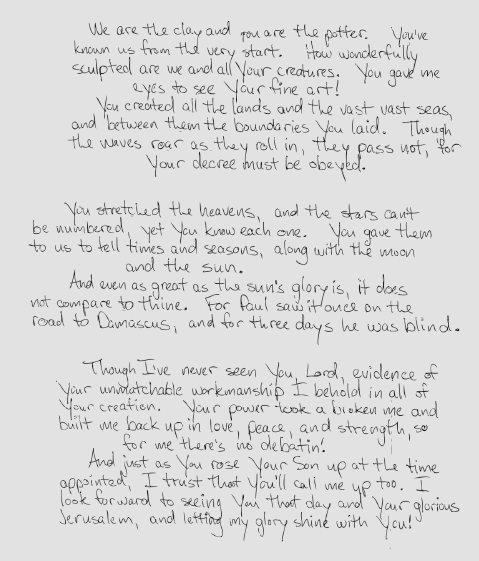 We are the clay and you are the potter. You've
known us from the very start. How wonderfully
sculpted are we and all Your creatures. You gave me
eyes to see Your fine art!
You created all the lands and the vast vast seas,
and between them the boundaries You laid. Though
the waves roar as they roll in, they pass not, for
Your decree must be obeyed.
You stretched the heavens, and the stars can't
be numbered, yet You know each one. You gave them
to us to tell times and seasons, along with the moon
and the sun.
And even as great as the sun's glory is, it does
not compare to thine. For Paul saw it once on the
road to Damascus, and for three days he was blind.
Though I've never seen You, Lord, evidence of
Your unmatchable workmanship I behold in all of
Your creation. Your power took a broken me and
built me back up in love, peace, and strength, so
for me there's no debatin'!
And just as You rose Your Son up at the time
appointed, I trust that You'll call me up too. I
look forward to seeing You that day and Your glorious
Jerusalem, and letting my glory shine with You!